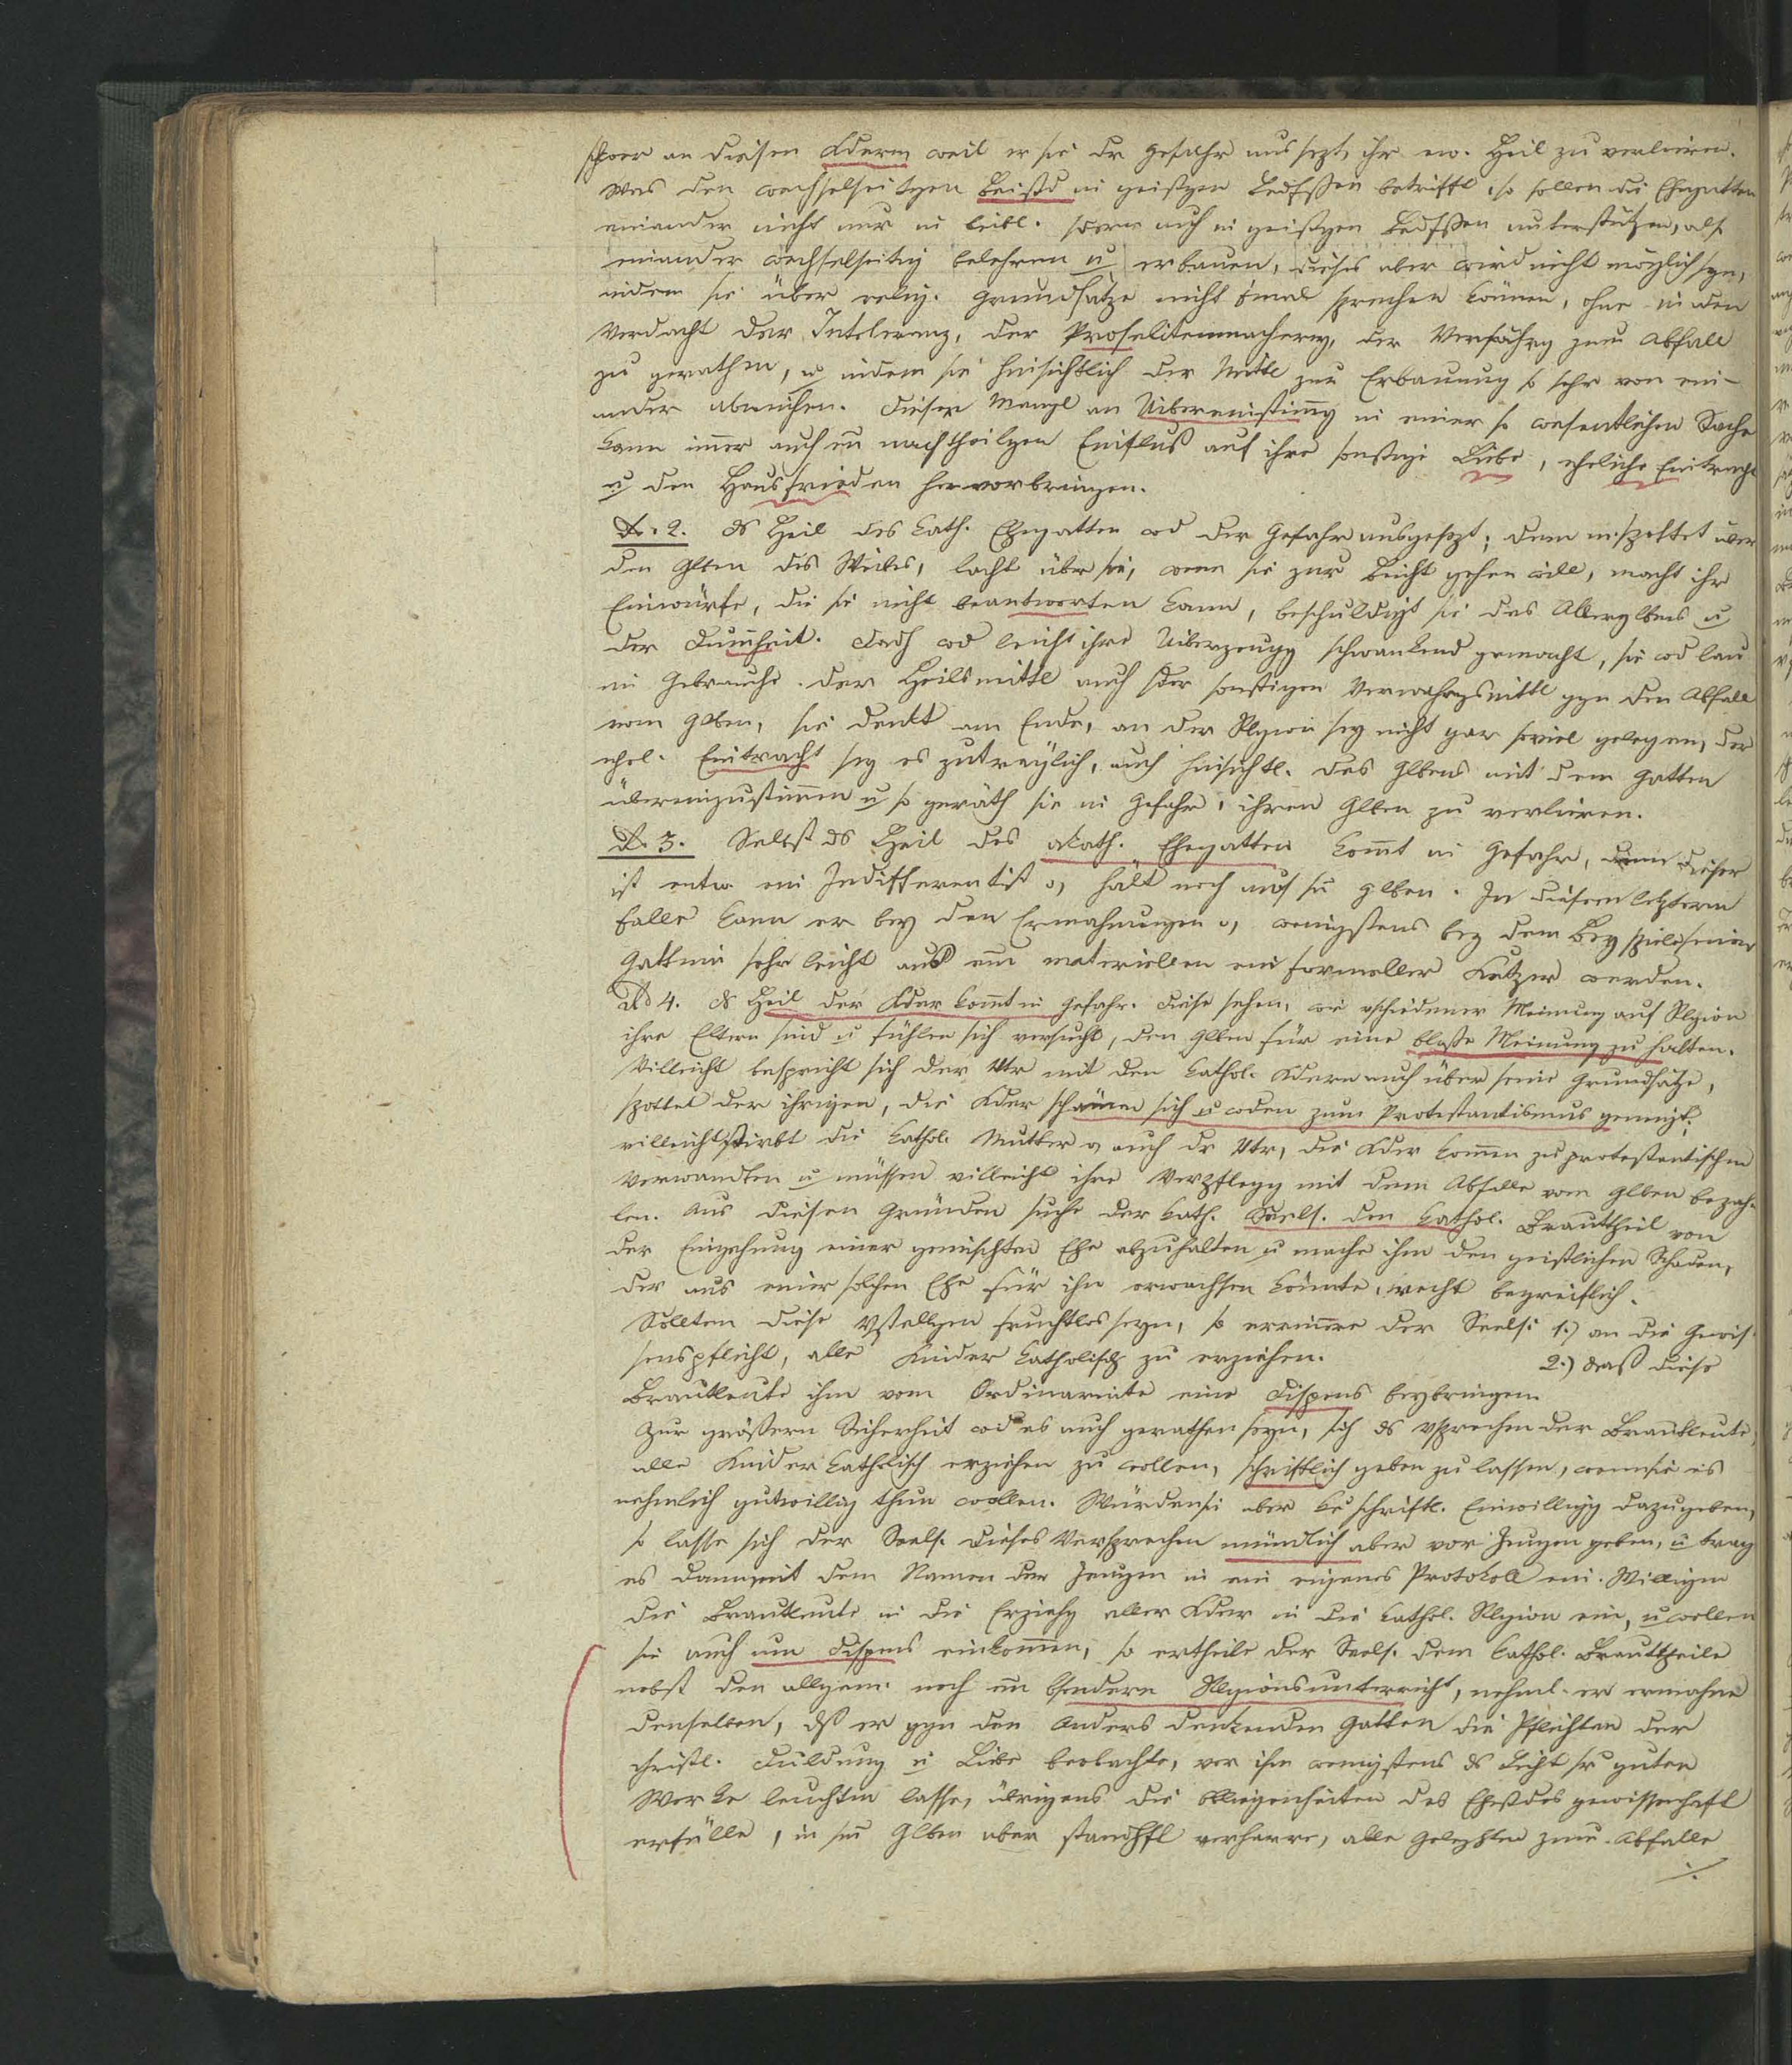 schwer an diesen Kdern weil er sie dr Gefahr aussezt, ihr ew. Heil zu verlieren.
Was den wechselseitgen Beistd in geistgen Bedfßen betrifft, so sollen die Ehegatten
einander nicht nur in leibl. sdern auch in geistgen Bedfßen unterstützen, als
einander wechselseitig belehren u erbauen, dieses aber wird nicht möglich seyn,
indem sie über relig. Grundsätze nicht einmal sprechen können, ohne in den
Verdacht der Intoleranz, der Proselitenmacherey, der Verführg zum Abfall
zu gerathen, u indem sie hinsichtlich der Mittl zur Erbauung so sehr von ein-
ander abweichen. Dieser Mangl an Uibereinstimg in einer so wesentlichen Sache
kann imer auch en nachtheilgen Einfluß auf ihre sonstige Liebe, eheliche Eintracht
u den Hausfrieden hervorbringen.
Ad. 2. ds Heil des kath. Ehegatten wd der Gefahr ausgesezt; denn spottet über
den Glben des Weibes, lacht über sie, wenn sie zur Beicht gehen will, macht ihr
Einwürfe, die sie nicht beantworten kann, beschuldigt sie des Aberglbens u
der Dumheit. Dadh wd leicht ihre Uiberzeugg schwankend gemacht, sie wd lau
im Gebrauche der Heilsmittl auch der sonstigen Verwahrgsmittl ggn den Abfall
vom Glben, sie denkt am Ende, an der Rlgion sey nicht gar soviel gelegen, der
ehel. Eintracht sey es zuträglich, auch hinsichtl. des Glbens mit dem Gatten
übereinzustimmen u so geräth sie in Gefahr, ihren Glben zu verlieren.
Ad. 3. Selbst ds Heil des akath. Ehegatten kommt in Gefahr, denn dieser
ist entw. ein Indifferentist o, hält noch auf sn Glben. In diesem letztern
Falle kann er bey den Ermahnungen o, wenigstens bey dem Beyspiele seiner
Gattin sehr leicht aus em materiellen ein formeller Ketzer werden.
Ad 4. ds Heil der Kder komt in Gefahr. Diese sehen, wie vschiedener Meinung auf Rlgion
ihre Eltern sind u fühlen sich versucht, den Glben für eine bloße Meinung zu halten.
Villeicht bespricht sich der Vtr mit den kathol. Kdern auch über seine Grundsätze,
spottet der ihrigen, die Kder schämen sich u wden zum Protestantismus geneigt;
villeicht stirbt die kathol. Mutter o, auch dr Vtr, die Kder komen zu protestantischen
Verwandten u müssen villeicht ihre Verpflegg mit dem Abfalle vom Glben bezah-
len. Aus diesen Gründen suche der kath. Seels. den kathol. Brauttheil von
der Eingehung einer gemischten Ehe abzuhalten u mache ihm den geistlichen Schaden,
der aus einer solchen Ehe für ihn erwachsen könnte, recht begreiflich.
Sollten diese Vstellgen fruchtlos seyn, so erinnere der Seels: 1.) an die Gewis-
senspflicht, alle Kinder katholisch zu erziehen. 2.) daß diese
Brautleute ihm vom Ordinariate eine Dispens beybringen.
Zur größern Sicherheit wd es auch gerathen seyn, sich ds Vsprechen der Brautleute,
alle Kinder katholisch erziehen zu wollen, schriftlich geben zu lassen, wenn sie es
nehmlich gutwillig thun wollen. Würden sie aber ke schriftl. Einwilligg dazu geben,
so lasse sich der Seels. dieses Versprechen mündlich aber vor Zeugen geben, u trag
es dann mit dem Namen der Zeugen in ein eigenes Protokoll ein. Willigen
die Brautleute in die Erziehg aller Kder in die kathol. Rlgion ein, u wollen
sie auch um Dispens einkommen, so ertheile der Seels. dem kathol. Brauttheile
nebst den allgem. noch en bsondern Rlgionsunterricht, nehml. er ermahne
denselben, dß er ggn den Anders denkenden Gatten die Pflichten der
christl. Duldung u Liebe beobachte, vor ihm wenigstens ds Licht sr guten
Werke leuchten lasse, übrigens die Obliegenheiten des Ehestdes gewissenhaft
erfülle, in sm Glben aber standhft verharre, alle Geleghten zum Abfalle
./.